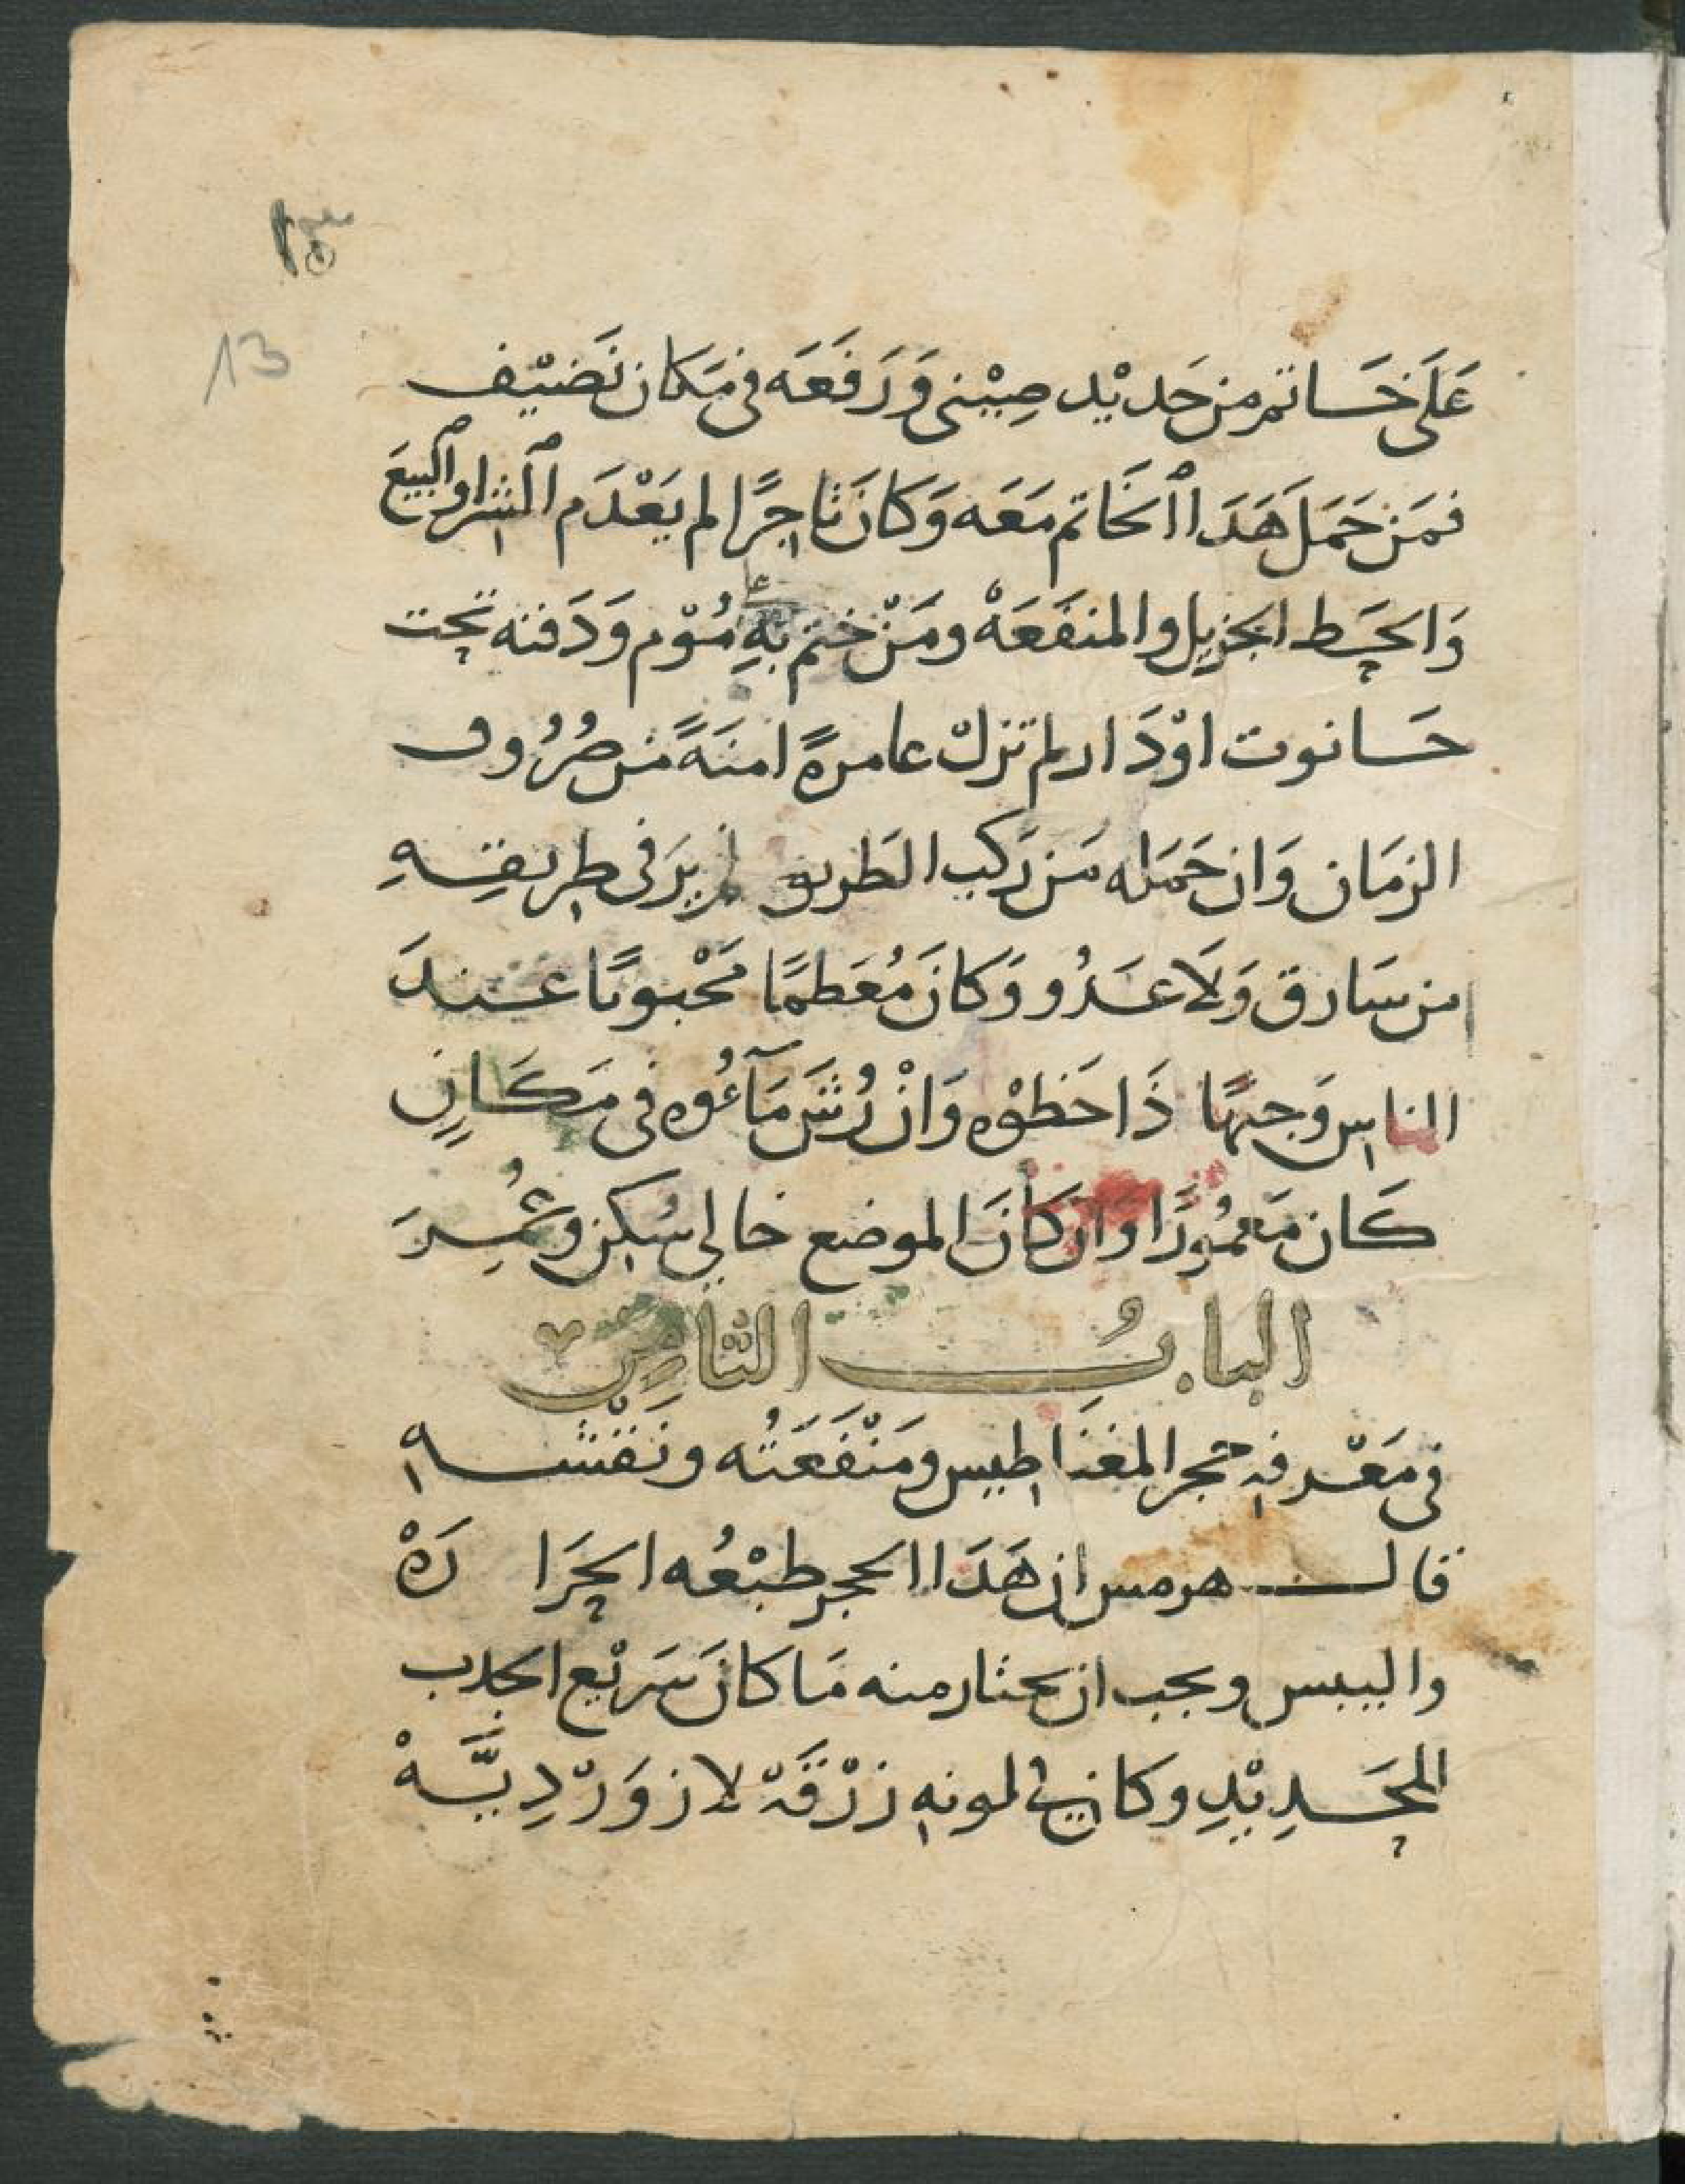 13
عَلَى خَاتم من حَديْد صِيْني وَرَفَعَه في مَكان نَضيْف
فمَن حَمَل هَدَا الخَاتم مَعَه وَكانَ تاجِرًا لم يَعْدَم الشرا والبيعَ
وَالحَط الجزيل والمنفَعَهْ ومَنْ ختم بهِ مُوْم وَدَفنه تحت
حَانوت اوْدَار لم تزلْ عامرةً امنَةً من صُرُوف
الزمَان وَان حَمَله مَن رَكب الطَريق لم يرَ في طريقِهِ
من سَارق وَلَا عَدُو وَكانَ مُعَطمًا مَحْبوبًا عندَ
الناس وَجيهًا ذَا حَظوْه وَانْ رُشَ مَآءُوه في مَكَانٍ
كَان مَعمُورًا وَان كَانَ الموضع خالي سُكن وعُمِرَ
البابُ الثامِن
في مَعْرفة حجر المغنَاطيس ومَنْفَعَتُه ونَقْشه
قال هرمس ان هَدَا الحجر طبْعُه الحَرَا رَهْ
واليبس ويجب ان يختار منه مَا كانَ سَريْع الجدب
للحَدِيْدِ وكان في لونه زرْقَة لازوَرْدِيَّهْ